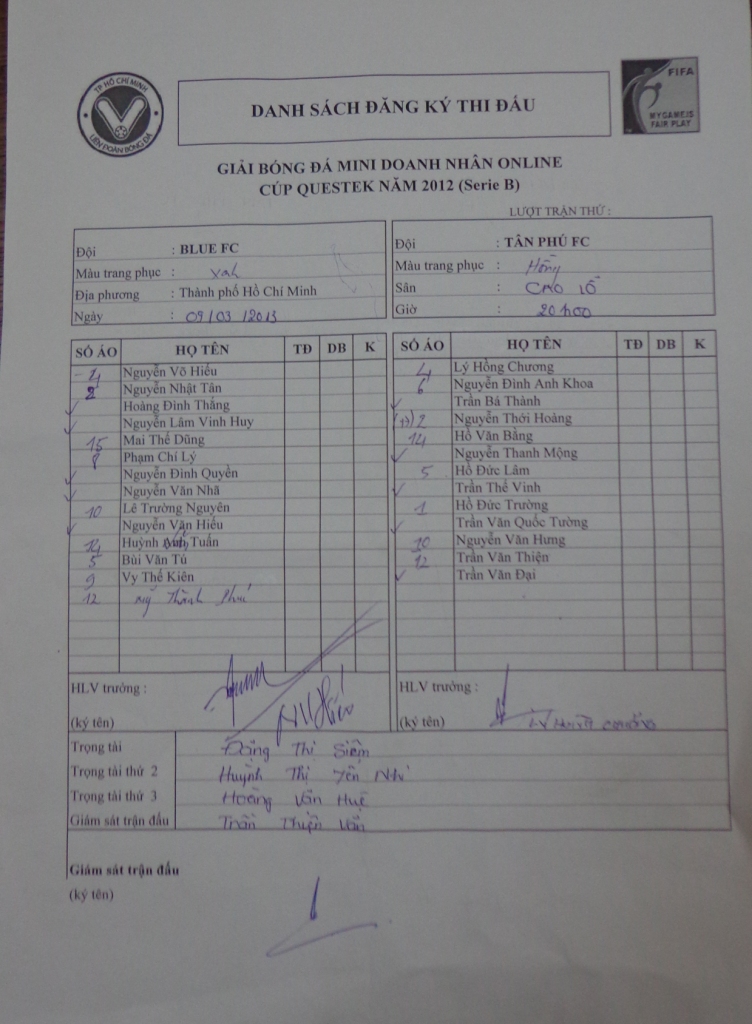 TP HỒ CHÍ MINH
LIÊN ĐOÀN BÓNG ĐÁ
DANH SÁCH ĐĂNG KÝ THI ĐẤU
FIFA
MY GAME IS
FAIR PLAY
GIẢI BÓNG ĐÁ MINI DOANH NHÂN ONLINE
CÚP QUESTEK NĂM 2012 (Serie B)
LƯỢT TRẬN THỨ :
Đội : BLUE FC
Màu trang phục : xanh
Địa phương : Thành phố Hồ Chí Minh
Ngày : 09/03/2013
Đội : TÂN PHÚ FC
Màu trang phục : Hồng
Sân : CAO LỖ
Giờ : 20h00
SỐ ÁO HỌ TÊN TĐ DB K
Nguyễn Võ Hiếu
2 Nguyễn Nhật Tân
Hoàng Đình Thắng
Nguyễn Lâm Vinh Huy
15 Mai Thế Dũng
8 Phạm Chí Lý
Nguyễn Đình Quyền
Nguyễn Văn Nhã
10 Lê Trường Nguyên
Nguyễn Văn Hiếu
14 Huỳnh Anh Tuấn
5 Bùi Văn Tú
9 Vy Thế Kiên
12 Thành
SỐ ÁO HỌ TÊN TĐ DB K
4 Lý Hồng Chương
6 Nguyễn Đình Anh Khoa
Trần Bá Thành
(17) 2 Nguyễn Thới Hoàng
14 Hồ Văn Bằng
Nguyễn Thanh Mộng
5 Hồ Đức Lâm
Trần Thế Vinh
1 Hồ Đức Trường
Trần Văn Quốc Tường
10 Nguyễn Văn Hưng
12 Trần Văn Thiện
Trần Văn Đại
HLV trưởng :
(ký tên)
HLV trưởng :
(ký tên)
Trọng tài Đặng Thị Siêm
Trọng tài thứ 2 Huỳnh Thị Yến Nhi
Trọng tài thứ 3 Hoàng Văn Huệ
Giám sát trận đấu Trần Thiện Văn
Giám sát trận đấu
(ký tên)